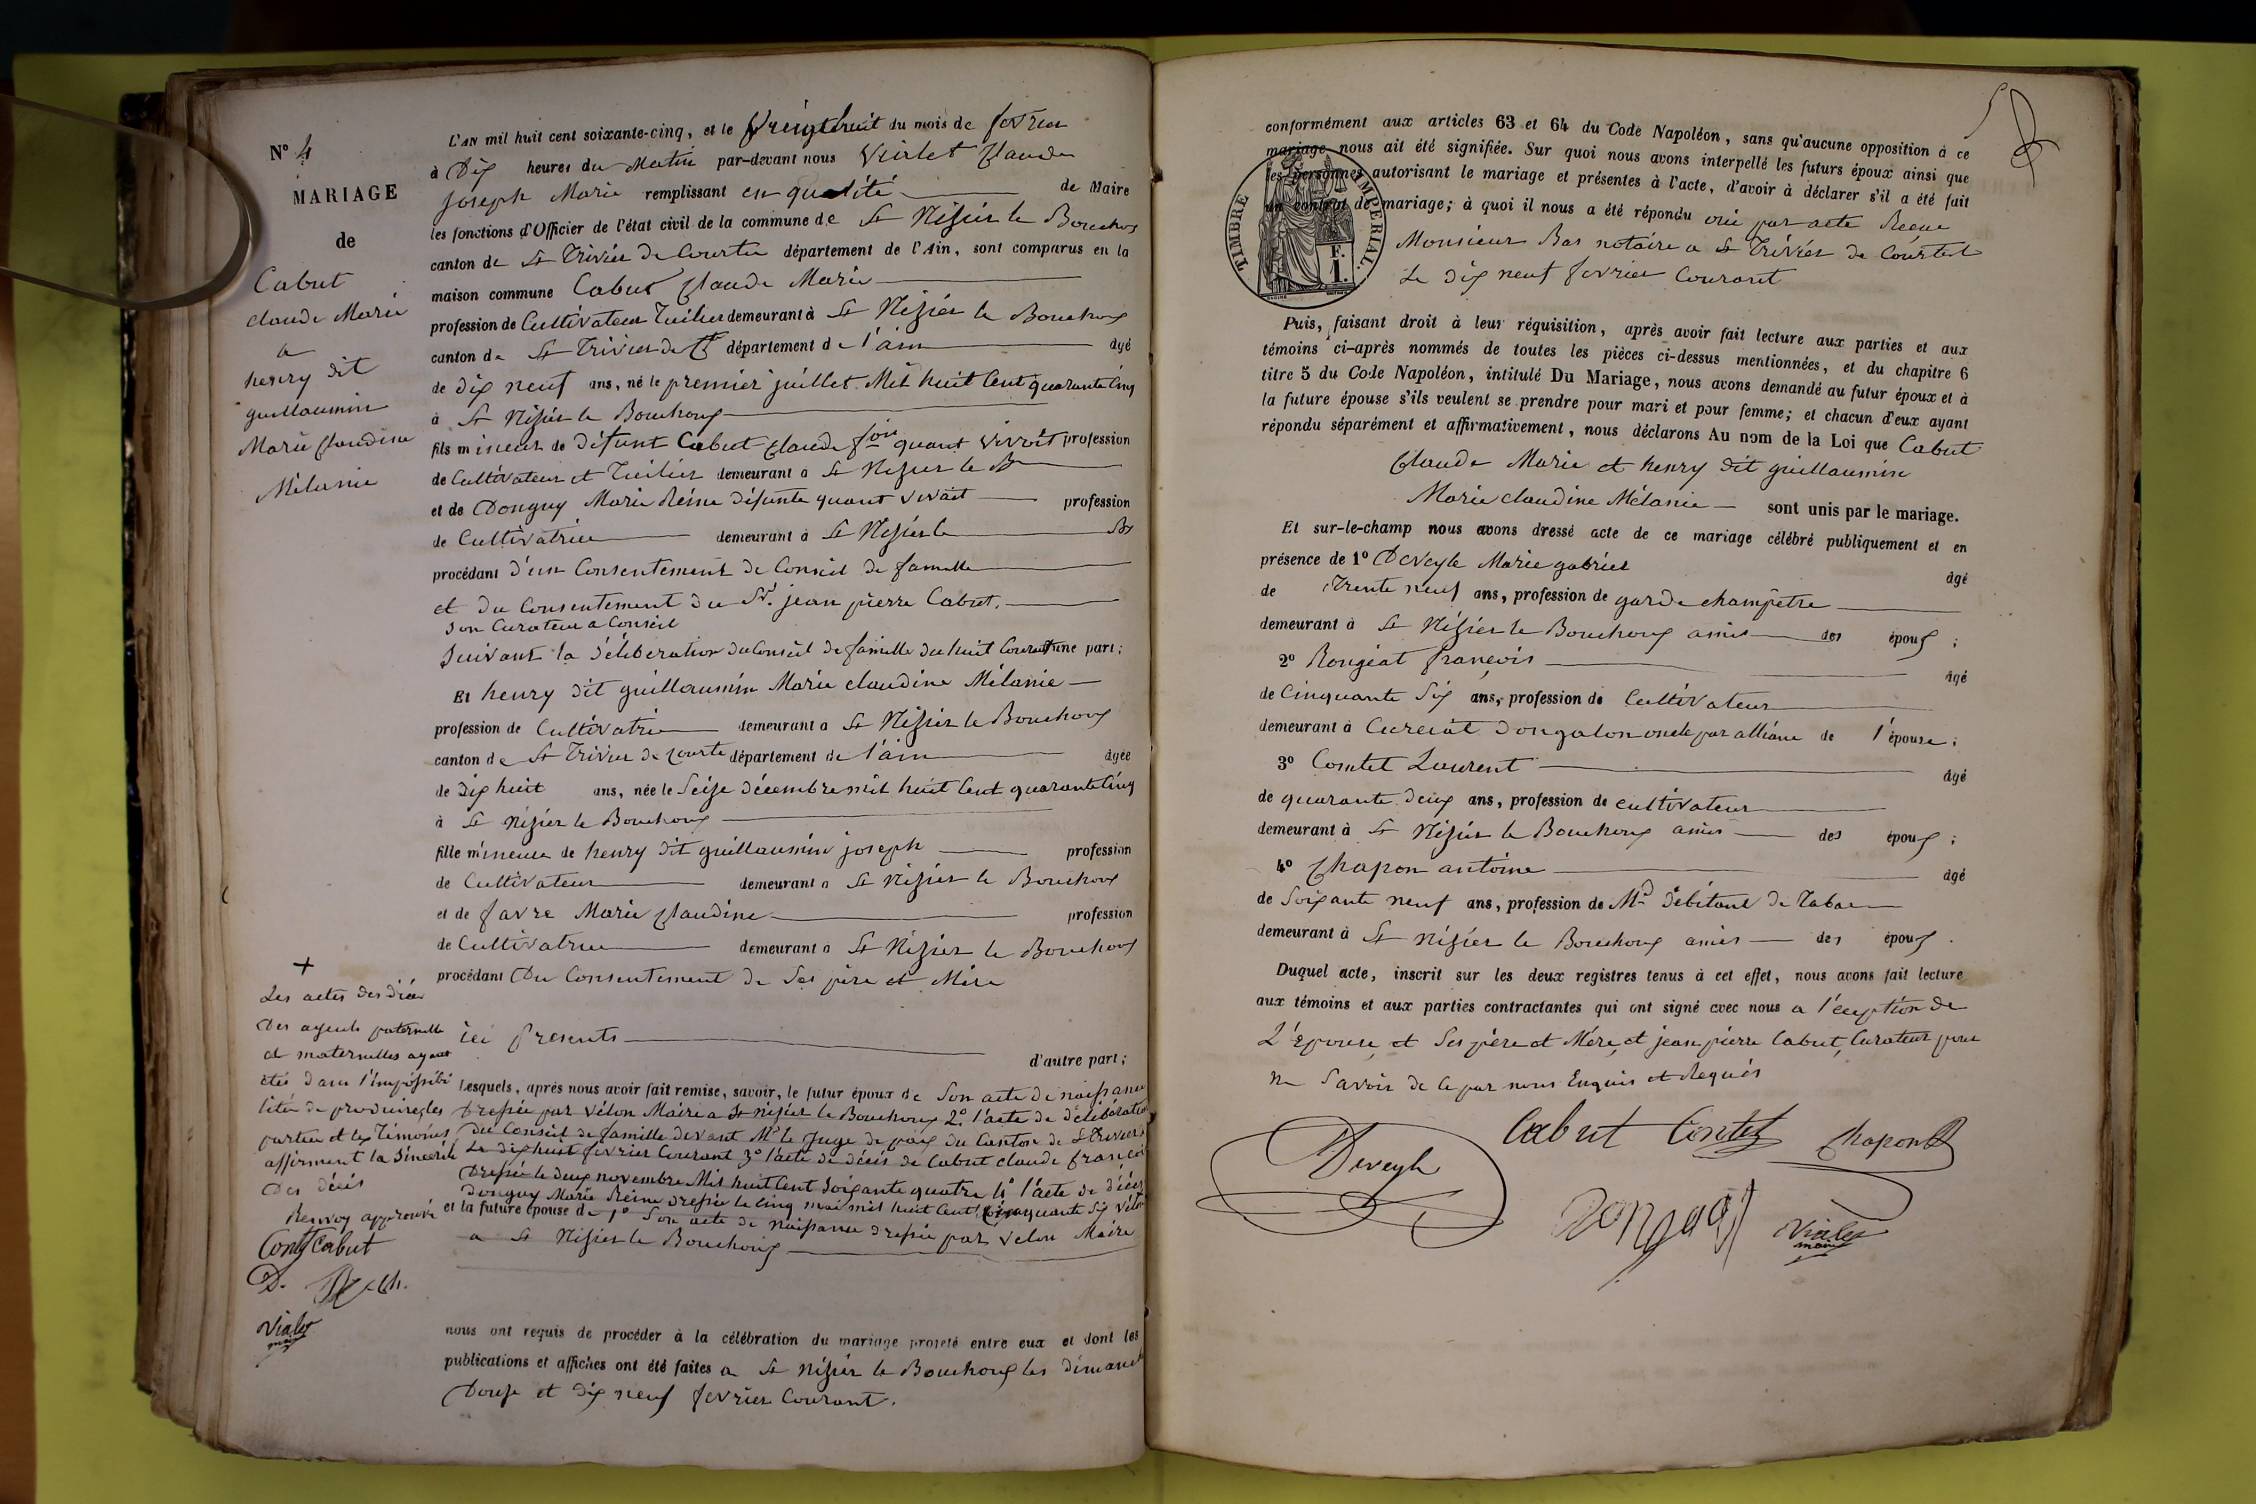 N° 4
MARIAGE
de
Cabut
claude Marie
a
henry dit
guillaumin
Marie Claudine
Mélanie
L'AN mil huit cent soixante-cinq, et le Vreingthuit du mois de fevrier
à Dix heures du Matin par-devant nous Virlet Claude
joseph Marie remplissant en qualité de Maire
les fonctions d'Officier de l'état civil de la commune de St Nisier le Bouchoux
canton de St Trivier de Courtes département de l'Ain, sont comparus en la
maison commune Cabut Claude Marie
profession de Cultivateur Tuilier demeurant à St Nisier le Bouchoux
canton de St Trivier de Ct département de l'ain âgé
de dix neuf ans, né le premier juillet Mil huit Cent quarante Cinq
à St Nisier le Bouchoux
fils mineur de défunt Cabut Claude fois quant vivoit profession
de Cultivateur et Tuilier demeurant à St Nisier le B
et de Donguy Marie Reine défunte quant vivait profession
de Cultivatrice demeurant à St Nisier le Bx
procédant d'un Consentement de Conseil de famille
et du Consentement du Sr. jean pierre Cabut,
son Curateur a Conseil
suivant la délibération du Conseil de famille du huit Courant d'une part;
Et henry dit guillaumin Marie claudine Mélanie
profession de Cultivatrice demeurant à St Nisier le Bouchoux
canton de St Trivier de Courte département de l'ain âgée
de dix huit ans, née le Seize décembre mil huit Cent quarante Cinq
à St Nisier le Bouchoux
fille mineure de henry dit guillaumin joseph profession
de Cultivateur demeurant à St Nisier le Bouchoux
et de favre Marie Claudine profession
de Cultivatrice demeurant à St Nisier le Bouchoux
procédant Du Consentement de Ses père et Mère
ici Présents d'autre part;
Lesquels, après nous avoir fait remise, savoir, le futur époux de Son acte de naissance
Dressée par Vélon Maire a St Nisier le Bouchoux 2.° l'acte de délibération
du Conseil de famille devant Mr le Juge de paix du Canton de St Trivier
Le dix huit fevrier Courant 3° l'acte de décés de Cabut claude françois
Dressée le deux novembre Mil huit Cent Soixante quatre 4° l'acte de décés
Donguy Marie Reine dressée le Cinq mai mil huit Cent Cinquante Six Vélon
et la future épouse de 1° Son acte de naissance dressée par Velon Maire
a St Nisier le Bouchoux
nous ont requis de procéder à la célébration du mariage projeté entre eux et dont les
publications et affiches ont été faites a St Nisier le Bouchoux les dimanch
Douze et dix neuf fevrier Courant.
+
Les actes des décés
Des ayeuls paternelle
et maternelles ayant
étés dans l'impossibi
litée de produire les
parties et les Témoins
affirment la Sincérité
Des décés
Renvoy approuvé
Contet Cabut
D. Ch.
Vialet
maire
conformément aux articles 63 et 64 du Code Napoléon, sans qu'aucune opposition à ce
mariage nous ait été signifiée. Sur quoi nous avons interpellé les futurs époux ainsi que
les personnes autorisant le mariage et présentes à l'acte, d'avoir à déclarer s'il a été fait
un contrat de mariage; à quoi il nous a été répondu oui par acte Recue
Monsieur Bas notaire a St Trivier de Courtes
Le dix neuf fevrier Courant
TIMBRE IMPÉRIAL.
E. I.
Puis, faisant droit à leur réquisition, après avoir fait lecture aux parties et aux
témoins ci-après nommés de toutes les pièces ci-dessus mentionnées, et du chapitre 6
titre 5 du Code Napoléon, intitulé Du Mariage, nous avons demandé au futur époux et à
la future épouse s'ils veulent se prendre pour mari et pour femme; et chacun d'eux ayant
répondu séparément et affirmativement, nous déclarons Au nom de la Loi que Cabut
Claude Marie et henry dit guillaumin
Marie claudine Mélanie sont unis par le mariage.
Et sur-le-champ nous avons dressé acte de ce mariage célébré publiquement et en
présence de 1° Deveyle Marie gabriel âgé
de Trente neuf ans, profession de garde champêtre
demeurant à St Nisier le Bouchoux amis des époux;
2° Rongeat françois âgé
de Cinquante Six ans, profession de Cultivateur
demeurant à Curciat Dongalon oncle par alliance de l'épouse;
3° Comtet Laurent âgé
de quarante deux ans, profession de cultivateur
demeurant à St Nisier le Bouchoux amis des époux;
4° Chapon antoine âgé
de Soixante neuf ans, profession de Md débitant de Tabac
demeurant à St Nisier le Bouchoux amis des époux.
Duquel acte, inscrit sur les deux registres tenus à cet effet, nous avons fait lecture
aux témoins et aux parties contractantes qui ont signé avec nous a l'éception de
L'épouse et Ses père et Mère, et jean pierre Cabut, Curateur pour
ne Savoir de Ce par nous Enquis et Requis
Cabut Contet Chapon
Deveyle
Rongeat
Vialet
maire